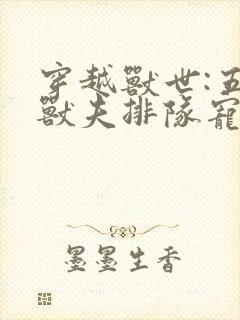 穿越獸世:五
獸夫排隊寵
墨墨生香